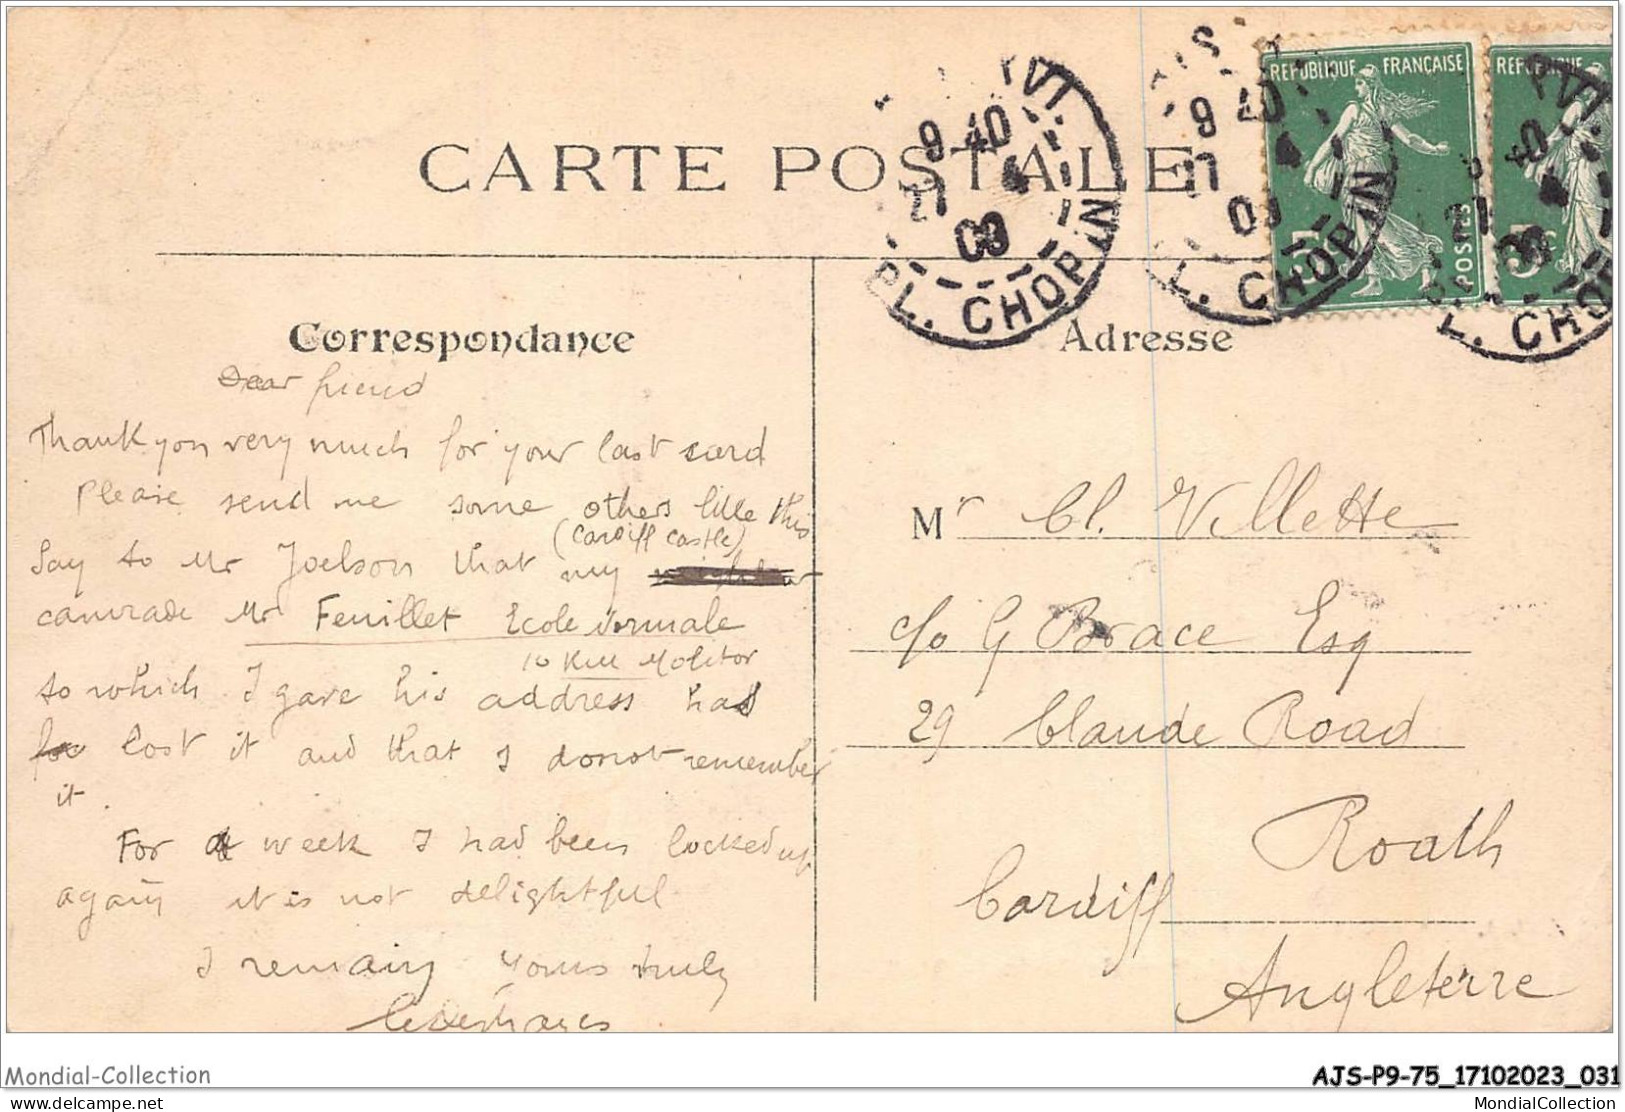 CARTE POSTALE
9 40
27 4
09
PL. CHOPIN
9 40
27 4
09
PL. CHOPIN
RÉPUBLIQUE FRANÇAISE
5
POSTES
5c
Correspondance
Dear friend
Thank you very much for your last card
Please send me some others like this
(Cardiff castle)
Say to Mr Joelson that my
camrade Mr Feuillet Ecole Normale
10 Rue Molitor
to which I gave his address had
lost it and that I donot remember
it.
For a week I had been locked up
again it is not delightful
I remain yours truly
Adresse
Mr Cl. Villette
c/o G Brace Esq
29 Claude Road
Roath
Cardiff
Angleterre
Mondial-Collection
AJS-P9-75_17102023_031
delcampe.net
MondialCollection